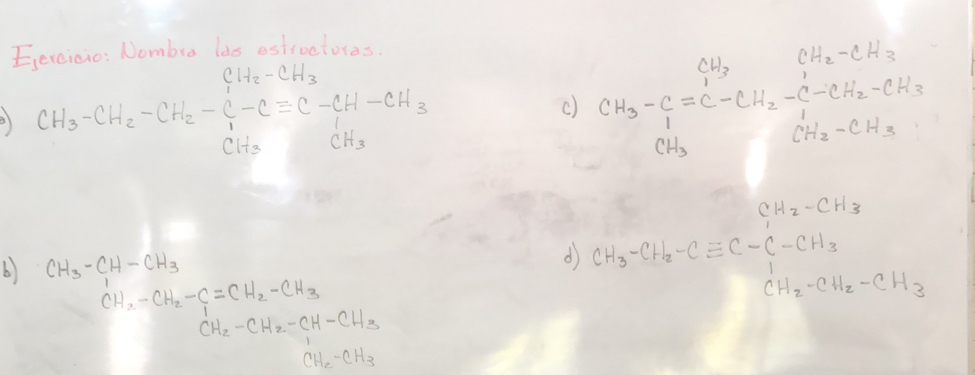 Ejercicio: Nombra las estructuras.
CH2-CH3
a) CH3-CH2-CH2-C-C≡C-CH-CH3
CH3 CH3
CH3 CH2-CH3
c) CH3-C=C-CH2-C-CH2-CH3
CH3 CH2-CH3
b) CH3-CH-CH3
CH2-CH2-C=CH2-CH3
CH2-CH2-CH-CH3
CH2-CH3
CH2-CH3
d) CH3-CH2-C≡C-C-CH3
CH2-CH2-CH3